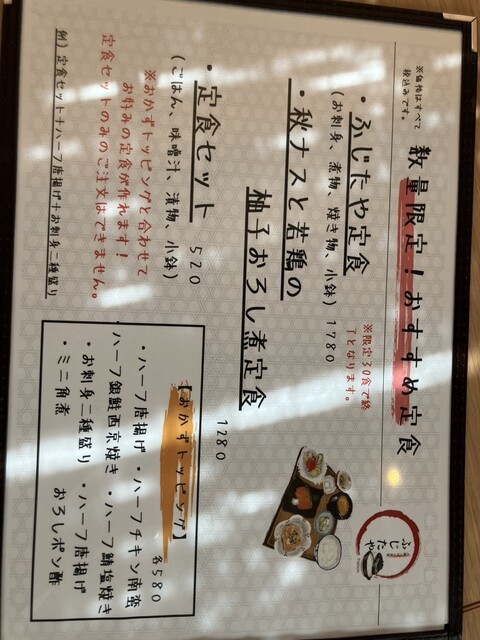 ※価格はすべて
税込みです。
数量限定！おすすめ定食
※限定30食で終
了となります。
・ふじたや定食
(お刺身、煮物、焼き物、小鉢) 1780
・秋ナスと若鶏の
柚子おろし煮定食
1280
・定食セット 520
(ごはん、味噌汁、漬物、小鉢)
※おかずトッピングと合わせて
お好みの定食が作れます！
定食セットのみのご注文はできません。
例）定食セット＋ハーフ唐揚げ＋お刺身二種盛り
【おかずトッピング】
各580
・ハーフ唐揚げ ・ハーフチキン南蛮
・ハーフ銀鮭西京焼き ・ハーフ鯖塩焼き
・お刺身二種盛り ・ハーフ唐揚げ
・ミニ角煮 おろしポン酢
ふじ
たや